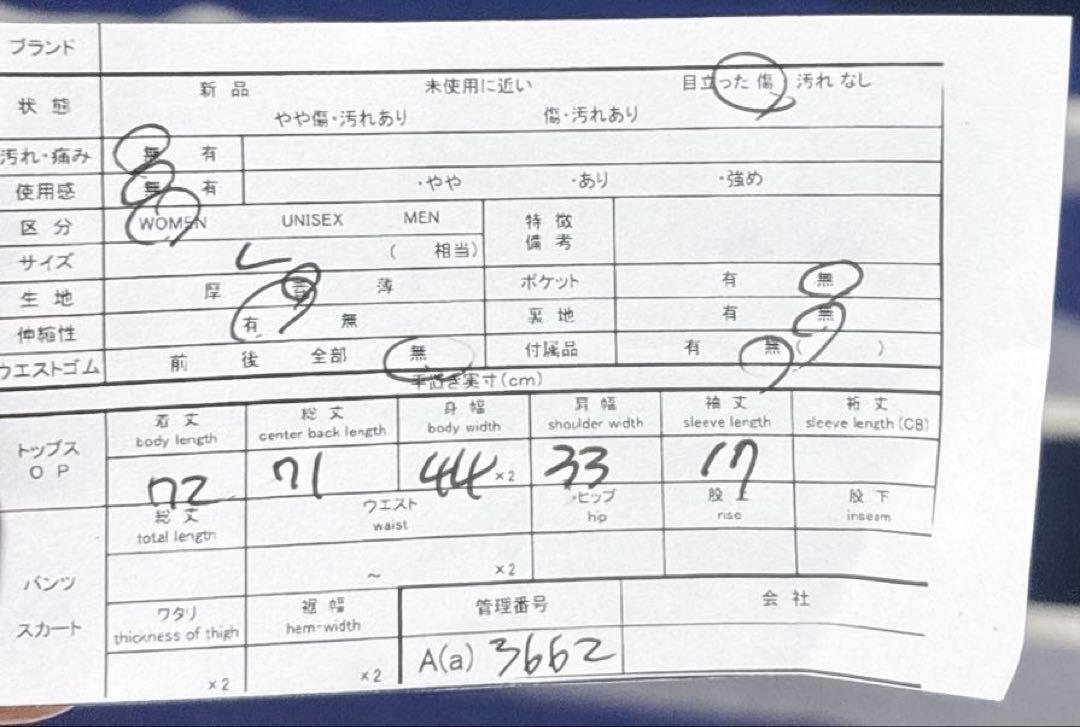 ブランド
状態 新品 未使用に近い 目立った傷 汚れなし
やや傷・汚れあり 傷・汚れあり
汚れ・痛み 無 有
使用感 無 有 ・やや ・あり ・強め
区分 WOMEN UNISEX MEN 特徴
備考
サイズ L ( 相当)
生地 厚 普 薄 ポケット 有 無
伸縮性 有 無 裏地 有 無
ウエストゴム 前 後 全部 無 付属品 有 無( )
平置き実寸(cm)
トップス
OP
着丈 総丈 身幅 肩幅 袖丈 裄丈
body length center back length body width shoulder width sleeve length sleeve length (CB)
72 71 44 ×2 33 17
パンツ
スカート
総丈 ウエスト ヒップ 股上 股下
total length waist hip rise inseam
~ ×2
ワタリ 裾幅 管理番号 会社
thickness of thigh hem-width
×2 ×2 A(a) 3662